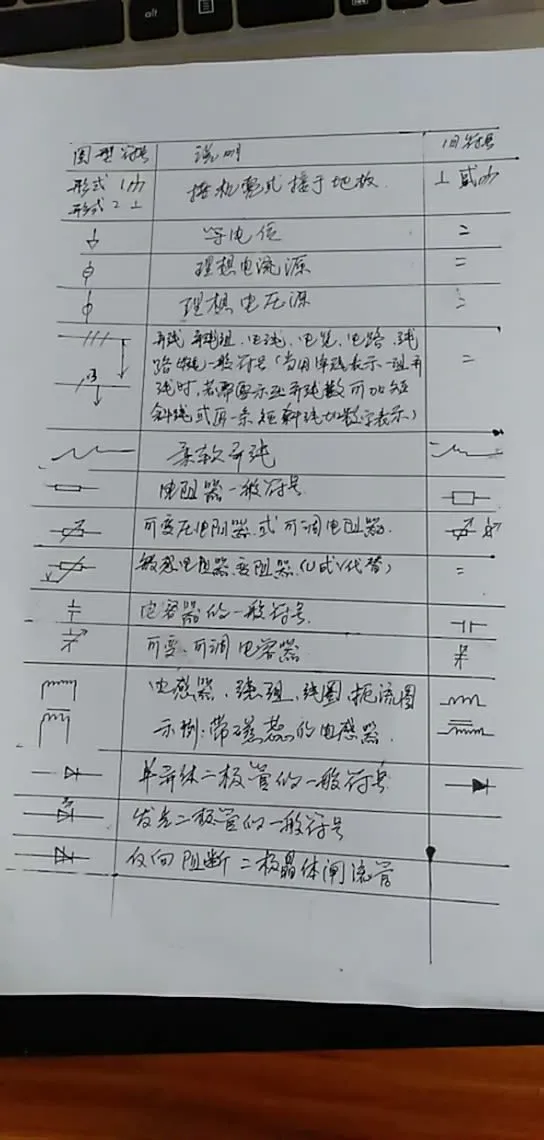 alt
图型符号 说明 旧符号
形式1 接机壳或接于地板 ⊥ 或
形式2 ⊥
等电位 =
理想电流源 =
理想电压源 =
导线 导线组、电线、电缆、电路、线
路 一般符号(当用单线表示一组导
线时,若需要示出导线数可加短
斜线或用一条短斜线加数字表示) =
3
柔软导线
电阻器一般符号
可变电阻器 或可调电阻器
电阻器 变阻器(U或V代替) =
电容器的一般符号
可变、可调电容器
电感器、线圈、扼流圈
示例:带磁芯的电感器
半导体二极管的一般符号
发光二极管的一般符号
反向阻断二极晶体闸流管